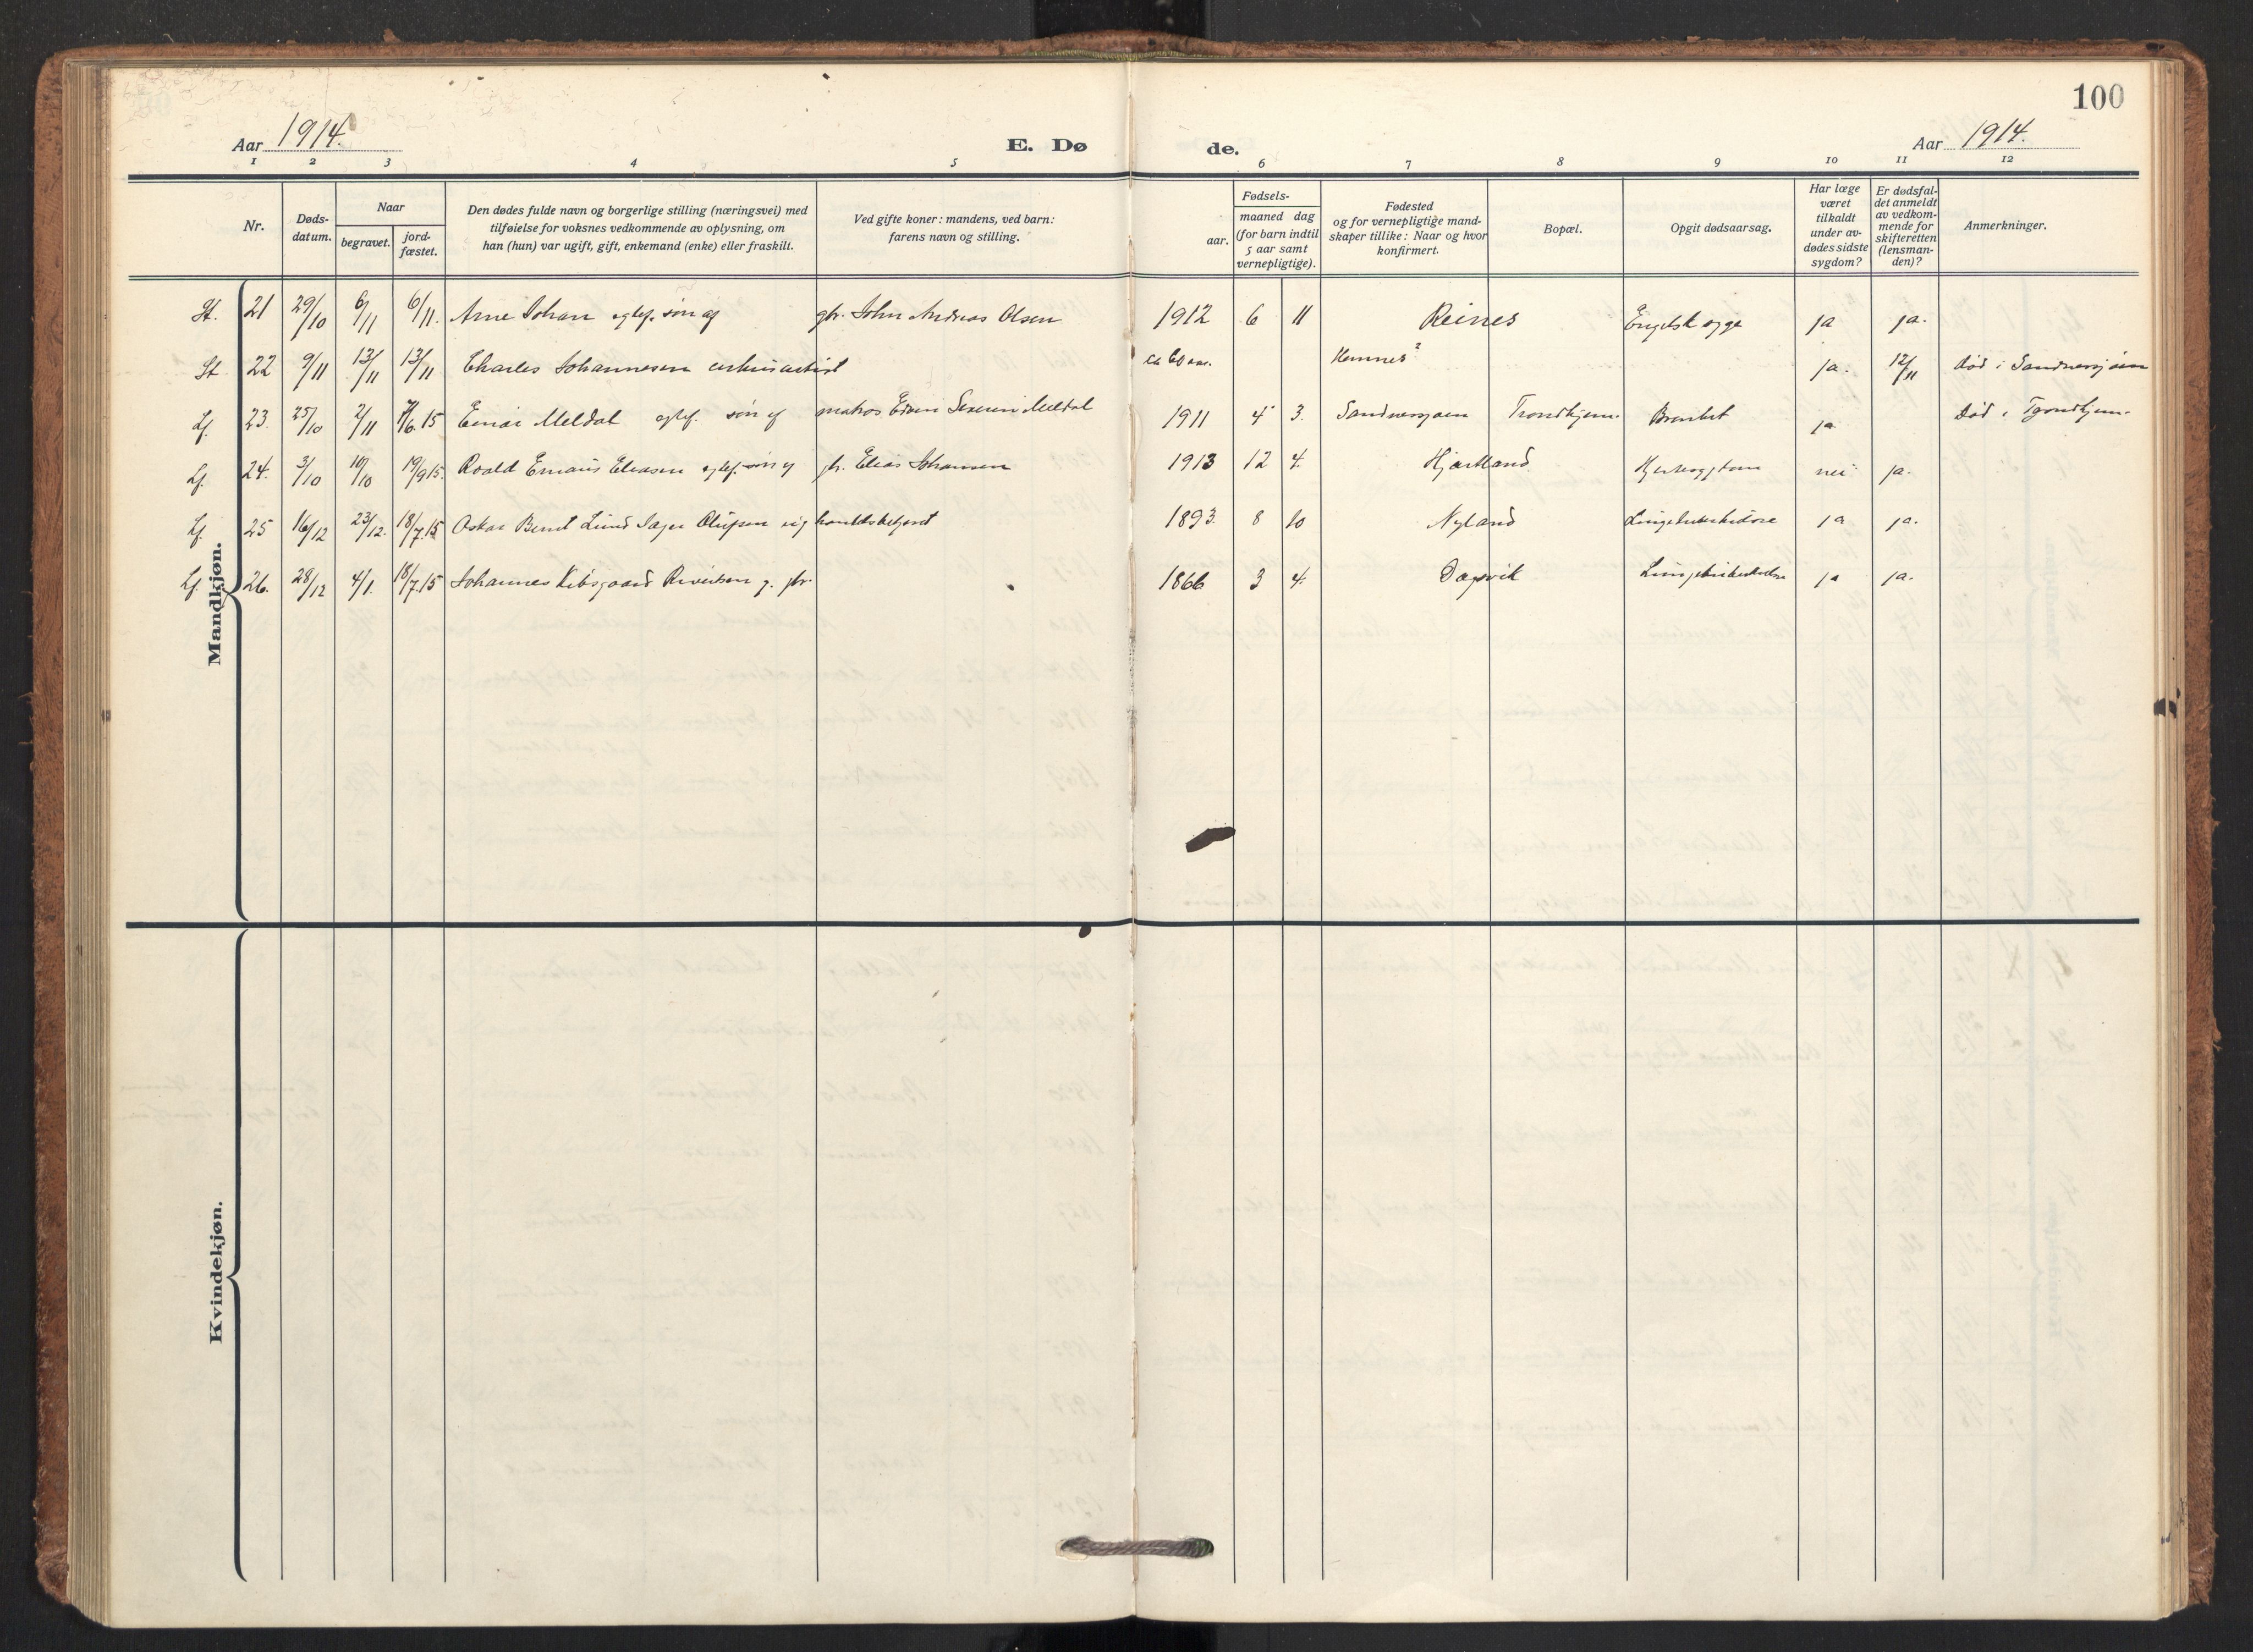 100
Aar 1914.
E. Dø
de.
Aar 1914.
1 2 3 4 5 6 7 8 9 10 11 12
Nr.
Døds-
datum.
Naar
begravet.
jord-
fæstet.
Den dødes fulde navn og borgerlige stilling (næringsvei) med
tilføielse for voksnes vedkommende av oplysning, om
han (hun) var ugift, gift, enkemand (enke) eller fraskilt.
Ved gifte koner: mandens, ved barn:
farens navn og stilling.
Fødsels-
aar.
maaned dag
(for barn indtil
5 aar samt
vernepligtige).
Fødested
og for vernepligtige mand-
skaper tillike: Naar og hvor
konfirmert.
Bopæl.
Opgit dødsaarsag.
Har læge
været
tilkaldt
under av-
dødes sidste
sygdom?
Er dødsfal-
det anmeldt
av vedkom-
mende for
skifteretten
(lensman-
den)?
Anmerkninger.
St. 21 29/10 6/11 6/11. Arne Johan egtef. søn af gbr. John Andreas Olsen 1912 6 11 Reines Engelsk syge ja ja.
St 22 9/11 13/11 13/11 Charles Johannesen cirkusartist ca 60 aar. Hemnes? ja. 12/11 død i Sandnessjøen
Lf. 23. 25/10 2/11 15 Einar Meldal egtef. søn af matros Edvin Severin Meldal 1911 4 3. Sandnessjøen Trondhjem. ja Død i Trondhjem.
Lf. 24. 3/10 10/10 19/9 15. Roald Eliasen egtef. søn af Elias Johansen 1913 12 4. Hjartland nei ja.
Lf. 25 16/12 23/12. 18/7.15 Oskar Bernt Lund Olufsen ug handelsbetjent 1893. 8 10 Nyland ja ja.
Lf. 26. 28/12 4/1. 18/7.15 Johannes g. gbr. 1866 3 4. Dagsvik ja ja.
Mandkjøn.
Kvindekjøn.